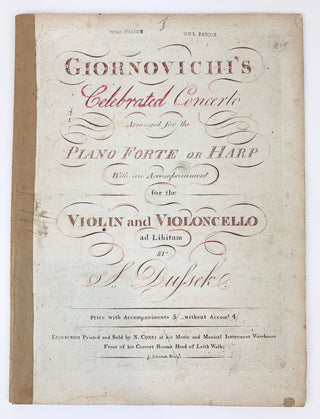 WILL PASCOE WILL PASCOE
GIORNOVICHI'S
Celebrated Concerto
Arranged for the
PIANO FORTE OR HARP
With an Accompaniment
for the
VIOLIN and VIOLONCELLO
ad Libitum
BY
Dussek
Price with Accompaniments 5/ without Accomts. 4/
EDINBURGH Printed and Sold by N. CORRI at his Music and Musical Instrument Warehouse
Front of his Concert Rooms Head of Leith Walk
J. Johnson Sculpt.